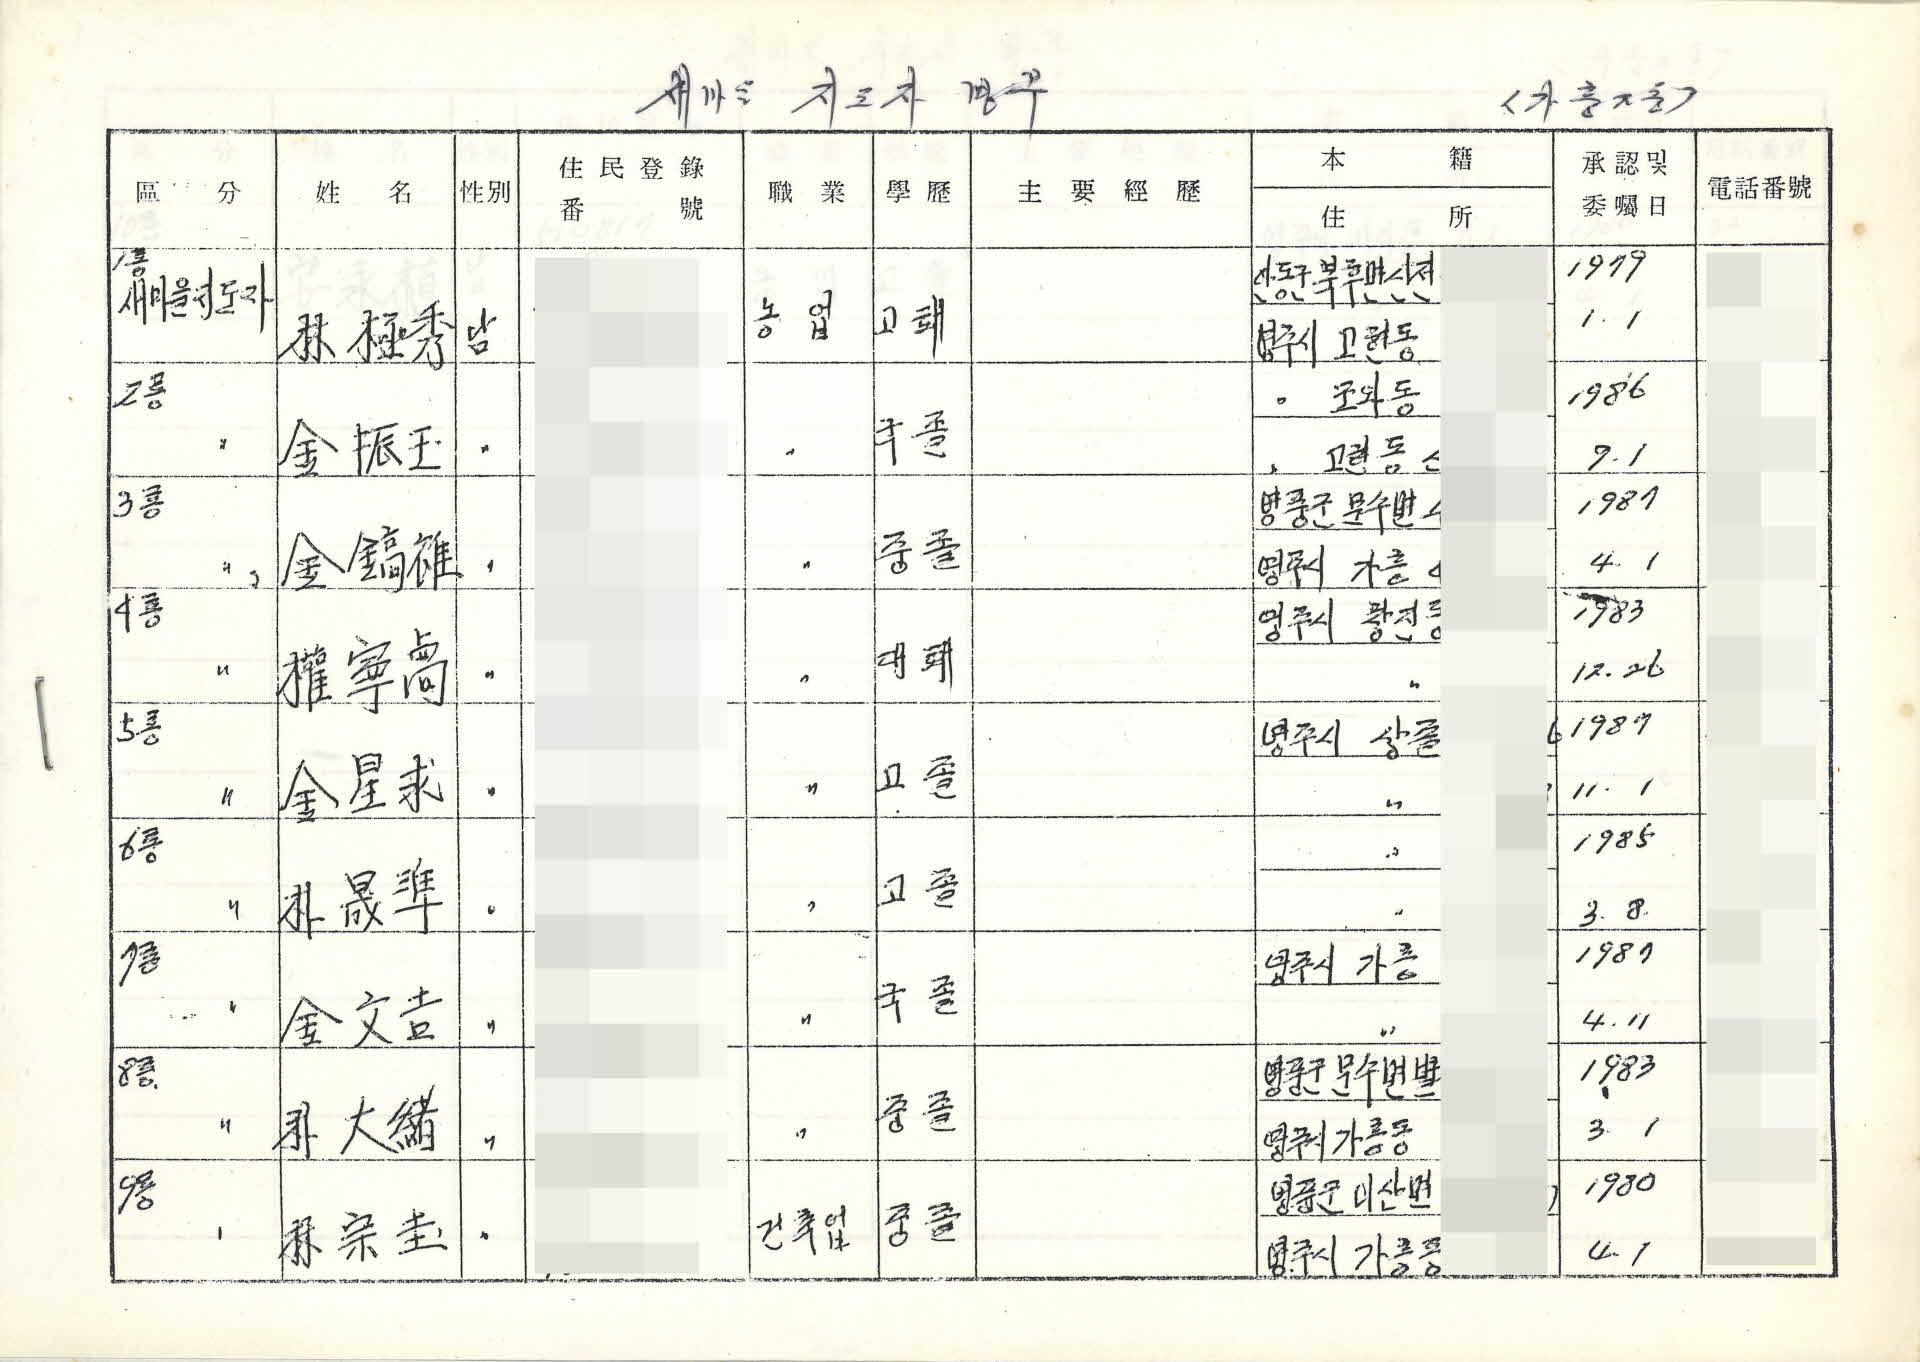 새마을 지도자 명부
<가흥1동>
區 分 姓 名 性別 住民登錄番號 職業 學歷 主要經歷 本籍 住所 承認및委囑日 電話番號
1통 새마을지도자 林極秀 남 농업 고퇴 안동군 북후면 신전 1979
영주시 고현동 1. 1
2통 〃 金振玉 〃 〃 국졸 〃 조와동 1986
〃 고현동 7. 1
3통 〃 金鎬雄 〃 〃 중졸 영풍군 문수면 1987
영주시 가흥 4. 1
4통 〃 權寧卨 〃 〃 대퇴 영주시 동 1983
〃 12. 26
5통 〃 金星求 〃 〃 고졸 영주시 상줄 1987
〃 11. 1
6통 〃 朴晟準 〃 〃 고졸 〃 1985
〃 3. 8.
7통 〃 金文吉 〃 〃 국졸 영주시 가흥 1987
〃 4. 11
8통. 〃 朴大緖 〃 〃 중졸 영풍군 문수면 1983
영주시 가흥동 3. 1
9통 〃 林宗圭 〃 건축업 중졸 영풍군 이산면 1980
영주시 가흥동 4. 1